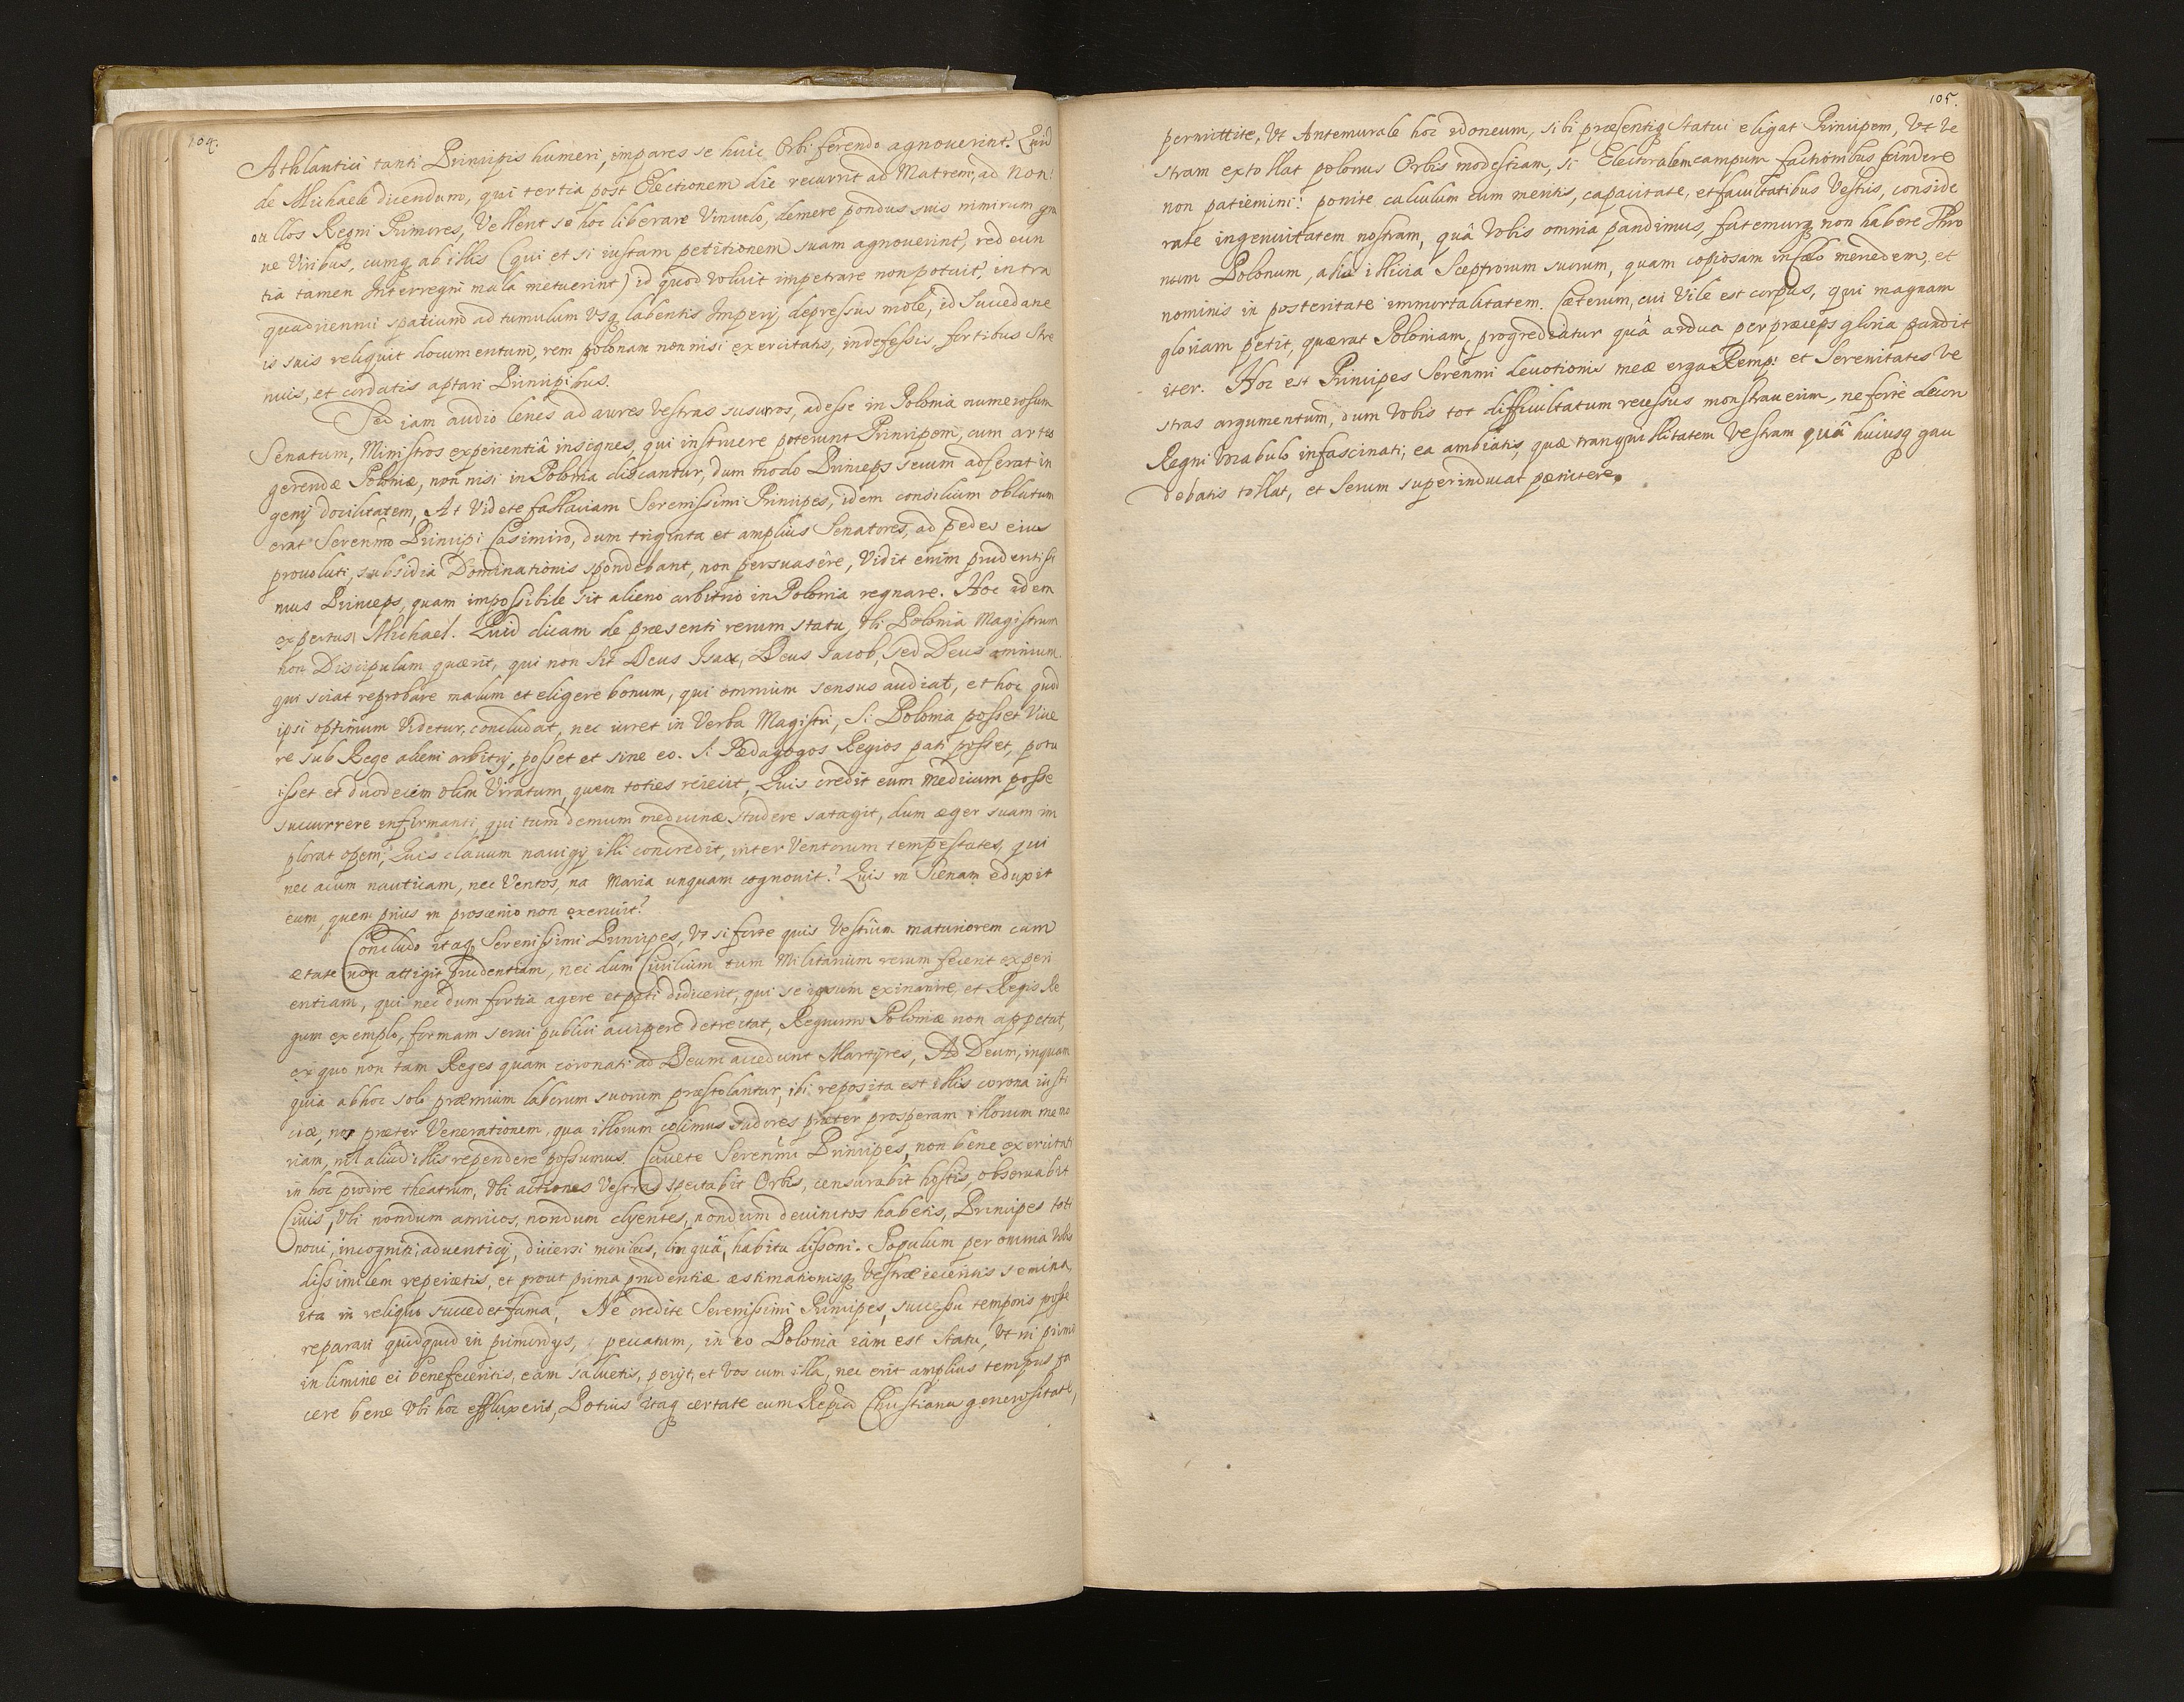 104.
Athlantici tanti Principis humeri, impares se huic Orbi ferendo agnouerint? Quid
de Michaele dicendum, qui tertia post Electionem die recurrit ad Matrem, ad non
nullos Regni Primores, Vellent se hoc liberare Vinculo, demere pondus suis nimirum gra
ue Viribus, cumq ab illis (qui et si iustam petitionem suam agnouerint, red eun
tia tamen Interregni mala metuerint) id quod voluit impetrare non potuit, intra
quadriennii spatium ad tumulum vsq labentis Imperij depressus mole, id Succedane
is suis reliquit documentum, rem polonam non nisi exercitatis, indefessis, fortibus Stre
nuis, et cordatis aptari Principibus.
Sed jam audio lenes ad aures vestras susurros, adesse in Polonia numerosum
Senatum, Ministros experientiâ insignes, qui instruere poterunt Principem, cum artes
gerendæ Poloniæ, non nisi in Polonia discantur, dum modo Princeps secum adferat in
genij docilitatem, At Videte fallaciam Serenissimi Principes, idem consilium oblatum
erat Serenmo Principi Casimiro, dum triginta et amplius Senatores, ad pedes eius
prouoluti, subsidia Dominationis spondebant, non persuasêre, Vidit enim prudentissi
mus Princeps, quam impossibile sit alieno arbitrio in Polonia regnare. Hoc idem
expertus Michael. Quid dicam de præsenti rerum statu, Vbi Polonia Magistrum
non Discipulum quærit, qui non sit Deus Isaac, Deus Jacob, sed Deus omnium.
qui sciat reprobare malum et eligere bonum, qui omnium sensus audiat, et hoc quod
ipsi optimum Videtur, concludat, nec iuret in Verba Magistri, Si Polonia posset Viue
re sub Rege alieni arbitrij, posset et sine eo. Si Pædagogos Regios pati posset, potu
isset et duodecim olim Viratum, quem toties reiecit, Quis credit eum Medicum posse
succurrere infirmanti, qui tum demum medicinæ studere satagit, dum æger suam im
plorat opem; Quis clauum nauigij illi concredit, inter Ventorum tempestates, qui
nec acum nauticam, nec Ventos, nec Maria unquam cognouit? Quis in Scenam eduxit
eum, quem prius in proscenio non exercuit?
Concludo itaq Serenissimi Principes, Vt si forte quis Vestrum maturiorem cum
ætate non attigit prudentiam, nec dum Ciuilium tum Militarium rerum fecerit experi
entiam, qui nec dum fortia agere et pati didicerit, qui se ipsum exinanire, et Regis Re
gum exemplo, formam serui publici accipere detrectat, Regnum Poloniæ non appetat,
ex quo non tam Reges quam coronati ad Deum accedunt Martyres, Ad Deum, inquam
quia ab hoc solo præmium laborum suorum præstolantur, ibi reposita est illis corona iusti
ciæ, nos præter Venerationem, qua illorum colimus sudores præter prosperam illorum memo
riam, nil aliud illis rependere possumus. Cauete Serenmi Principes, non bene exercitati
in hoc prodire theatrum, Vbi actiones Vestras spectabit Orbis, censurabit hostis, obseruabit
Ciuis, Vbi nondum amicos, nondum clyentes, nondum deuinctos habetis, Principes toti
noui, incogniti, aduenticij, diuersi moribus, linguâ, habitu dissoni. Populum per omnia Vobis
dissimilem reperietis, et prout prima prudentiæ æstimationisq Vestræ ieceritis semina,
ita in reliquo succedet fama, Ne credite Serenissimi Principes, successu temporis posse
reparari quidquid in primordijs, peccatum, in eo Polonia iam est Statu, Vt ni primo
in limine ei benefeceritis, eam saluetis, perijt, et vos cum illa, nec erit amplius tempus fa
cere bene Vbi hoc effluxerit, Potius itaq certate cum Repca Christiana generositate,
105.
permittite, Vt Antemurale hoc idoneum, sibi præsentiq Statui eligat Principem, Vt Ve
stram extollat polonus Orbis modestiam, si Electoralem campum factionibus scindere
non patiemini: ponite calculum cum meritis, capacitate, et facultatibus Vestris, conside
rate ingenuitatem nostram, quâ Vobis omnia pandimus, fatemurq non habere Thro
num Polonum, alia illicia Sceptrorum suorum, quam copiosam in Cælo mercedem, et
nominis in posteritate immortalitatem. Cæterum, cui Vile est corpus, qui magnam
gloriam petit, quærat Poloniam, progrediatur quâ ardua per præceps gloria pandit
iter. Hoc est Principes Serenmi deuotionis meæ erga Remp: et Serenitates Ve
stras argumentum, dum Vobis tot difficultatum recessus monstrauerim, ne forte decori
Regni Vocabulo infascinati, ea ambiatis, quæ tranquillitatem Vestram quâ hucusq gau
debatis tollat, et serum superinducat pænitere.